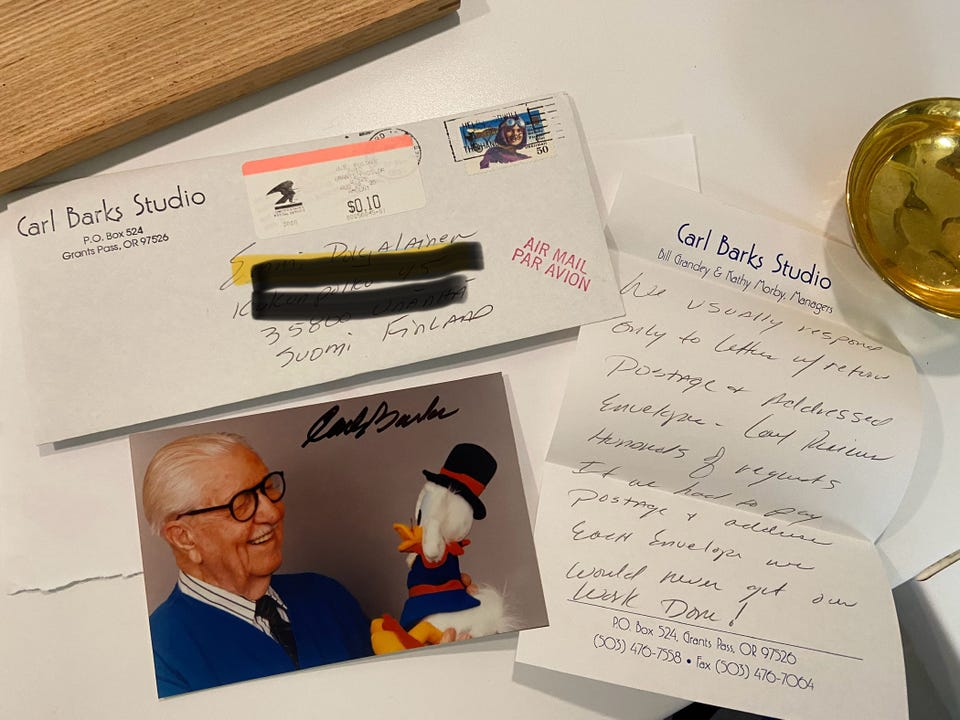 Carl Barks Studio
P.O. Box 524
Grants Pass, OR 97526
$0.10
50
AIR MAIL
PAR AVION
35800
SUOMI FINLAND
Carl Barks
Carl Barks Studio
Bill Grandey & Kathy Morby, Managers
We usually respond
only to letters w/return
Postage & Addressed
Envelope - Carl Receives
Hundreds of requests
If we had to pay
postage & address
Each Envelope we
would never get our
Work Done!
P.O. Box 524, Grants Pass, OR 97526
(503) 476-7558 • Fax (503) 476-7064